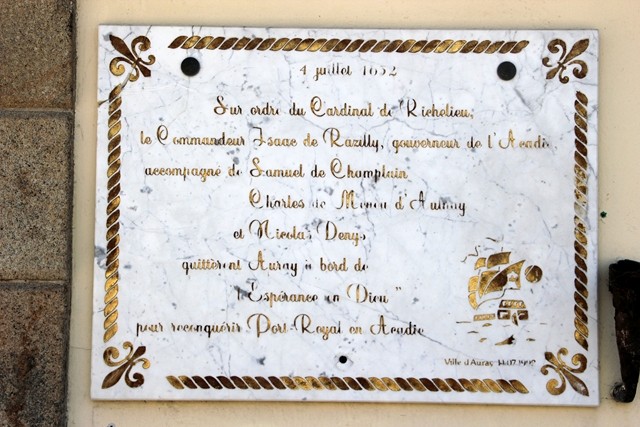 4 juillet 1632
Sur ordre du Cardinal de Richelieu,
le Commandeur Isaac de Razilly, gouverneur de l'Acadie,
accompagné de Samuel de Champlain
Charles de Menou d'Aulnay
et Nicolas Denys
quittèrent Auray à bord de
"l'Espérance en Dieu"
pour reconquérir Port-Royal en Acadie
Ville d'Auray 14.07.